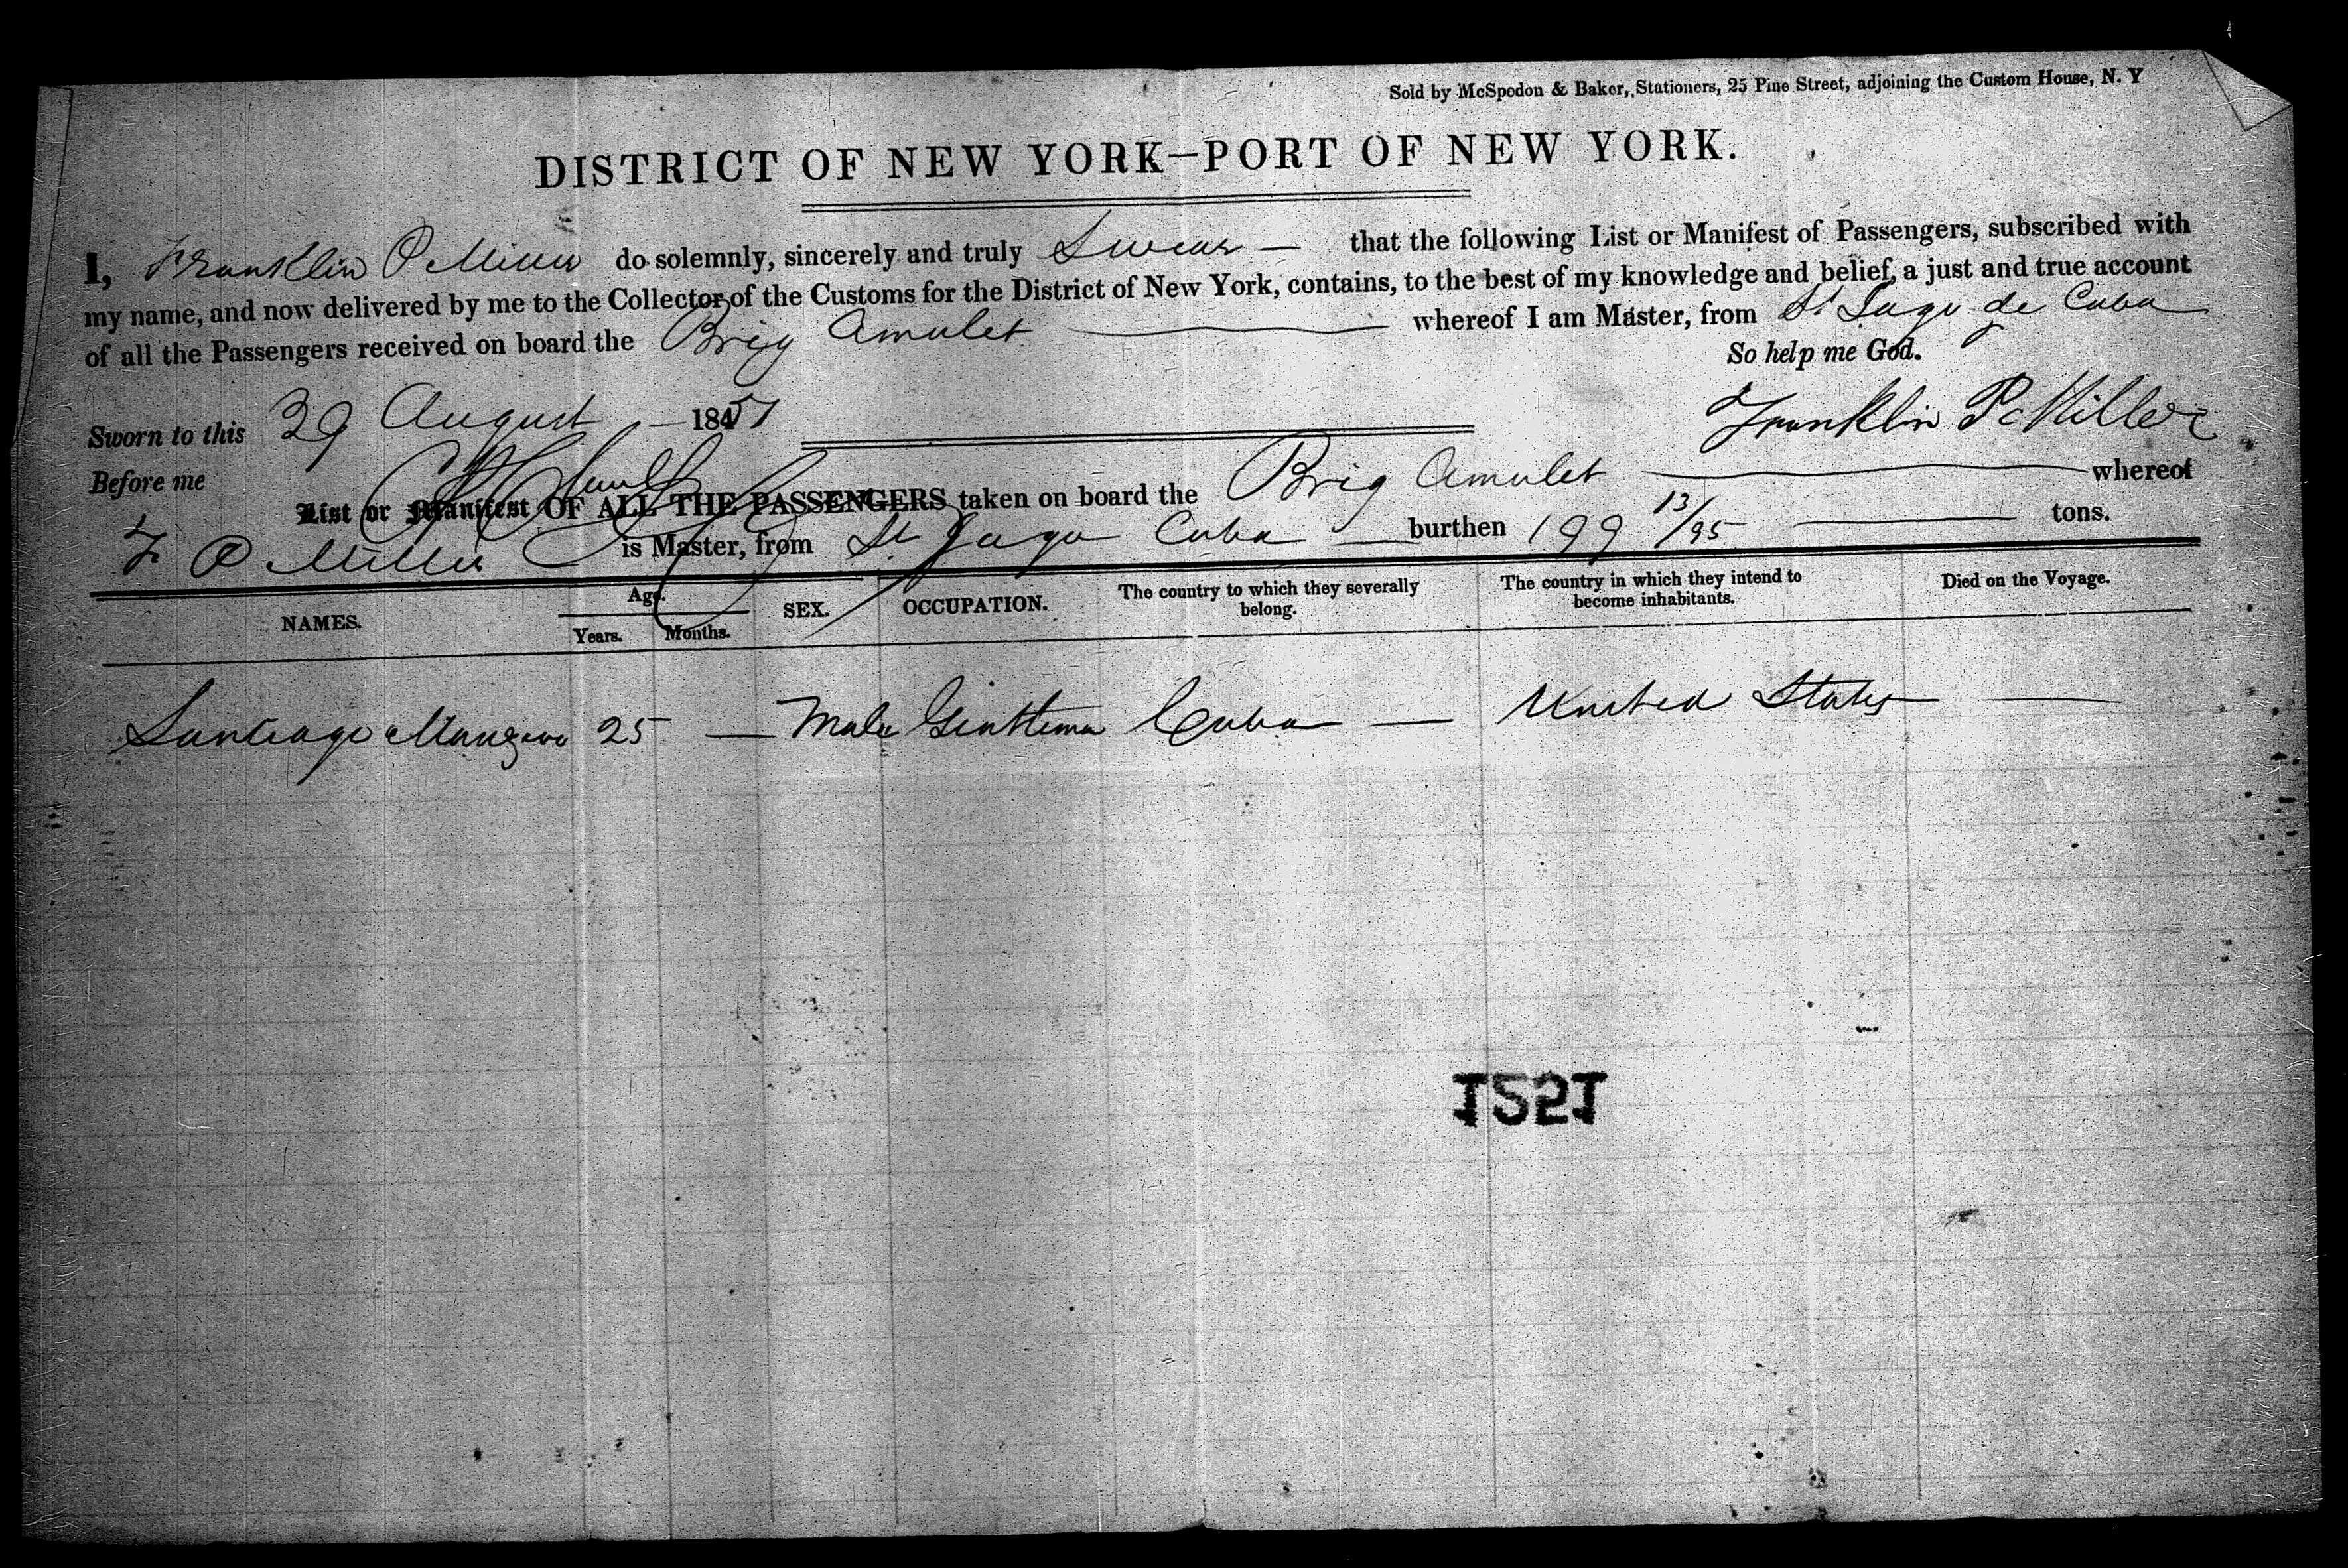 Sold by McSpedon & Baker, Stationers, 25 Pine Street, adjoining the Custom House, N. Y
DISTRICT OF NEW YORK—PORT OF NEW YORK.
I, Franklin P Miller do solemnly, sincerely and truly Swear — that the following List or Manifest of Passengers, subscribed with
my name, and now delivered by me to the Collector of the Customs for the District of New York, contains, to the best of my knowledge and belief, a just and true account
of all the Passengers received on board the Brig Amulet — whereof I am Master, from St Jago de Cuba
So help me God.
Sworn to this 29 August 1851
Franklin P Miller
Before me
List or Manifest OF ALL THE PASSENGERS taken on board the Brig Amulet — whereof
F P Miller is Master, from St Jago Cuba — burthen 199 13/95 — tons.
NAMES. Age. Years. Months. SEX. OCCUPATION. The country to which they severally belong. The country in which they intend to become inhabitants. Died on the Voyage.
Santiago 25 — Male Gentleman Cuba — United States —
1251